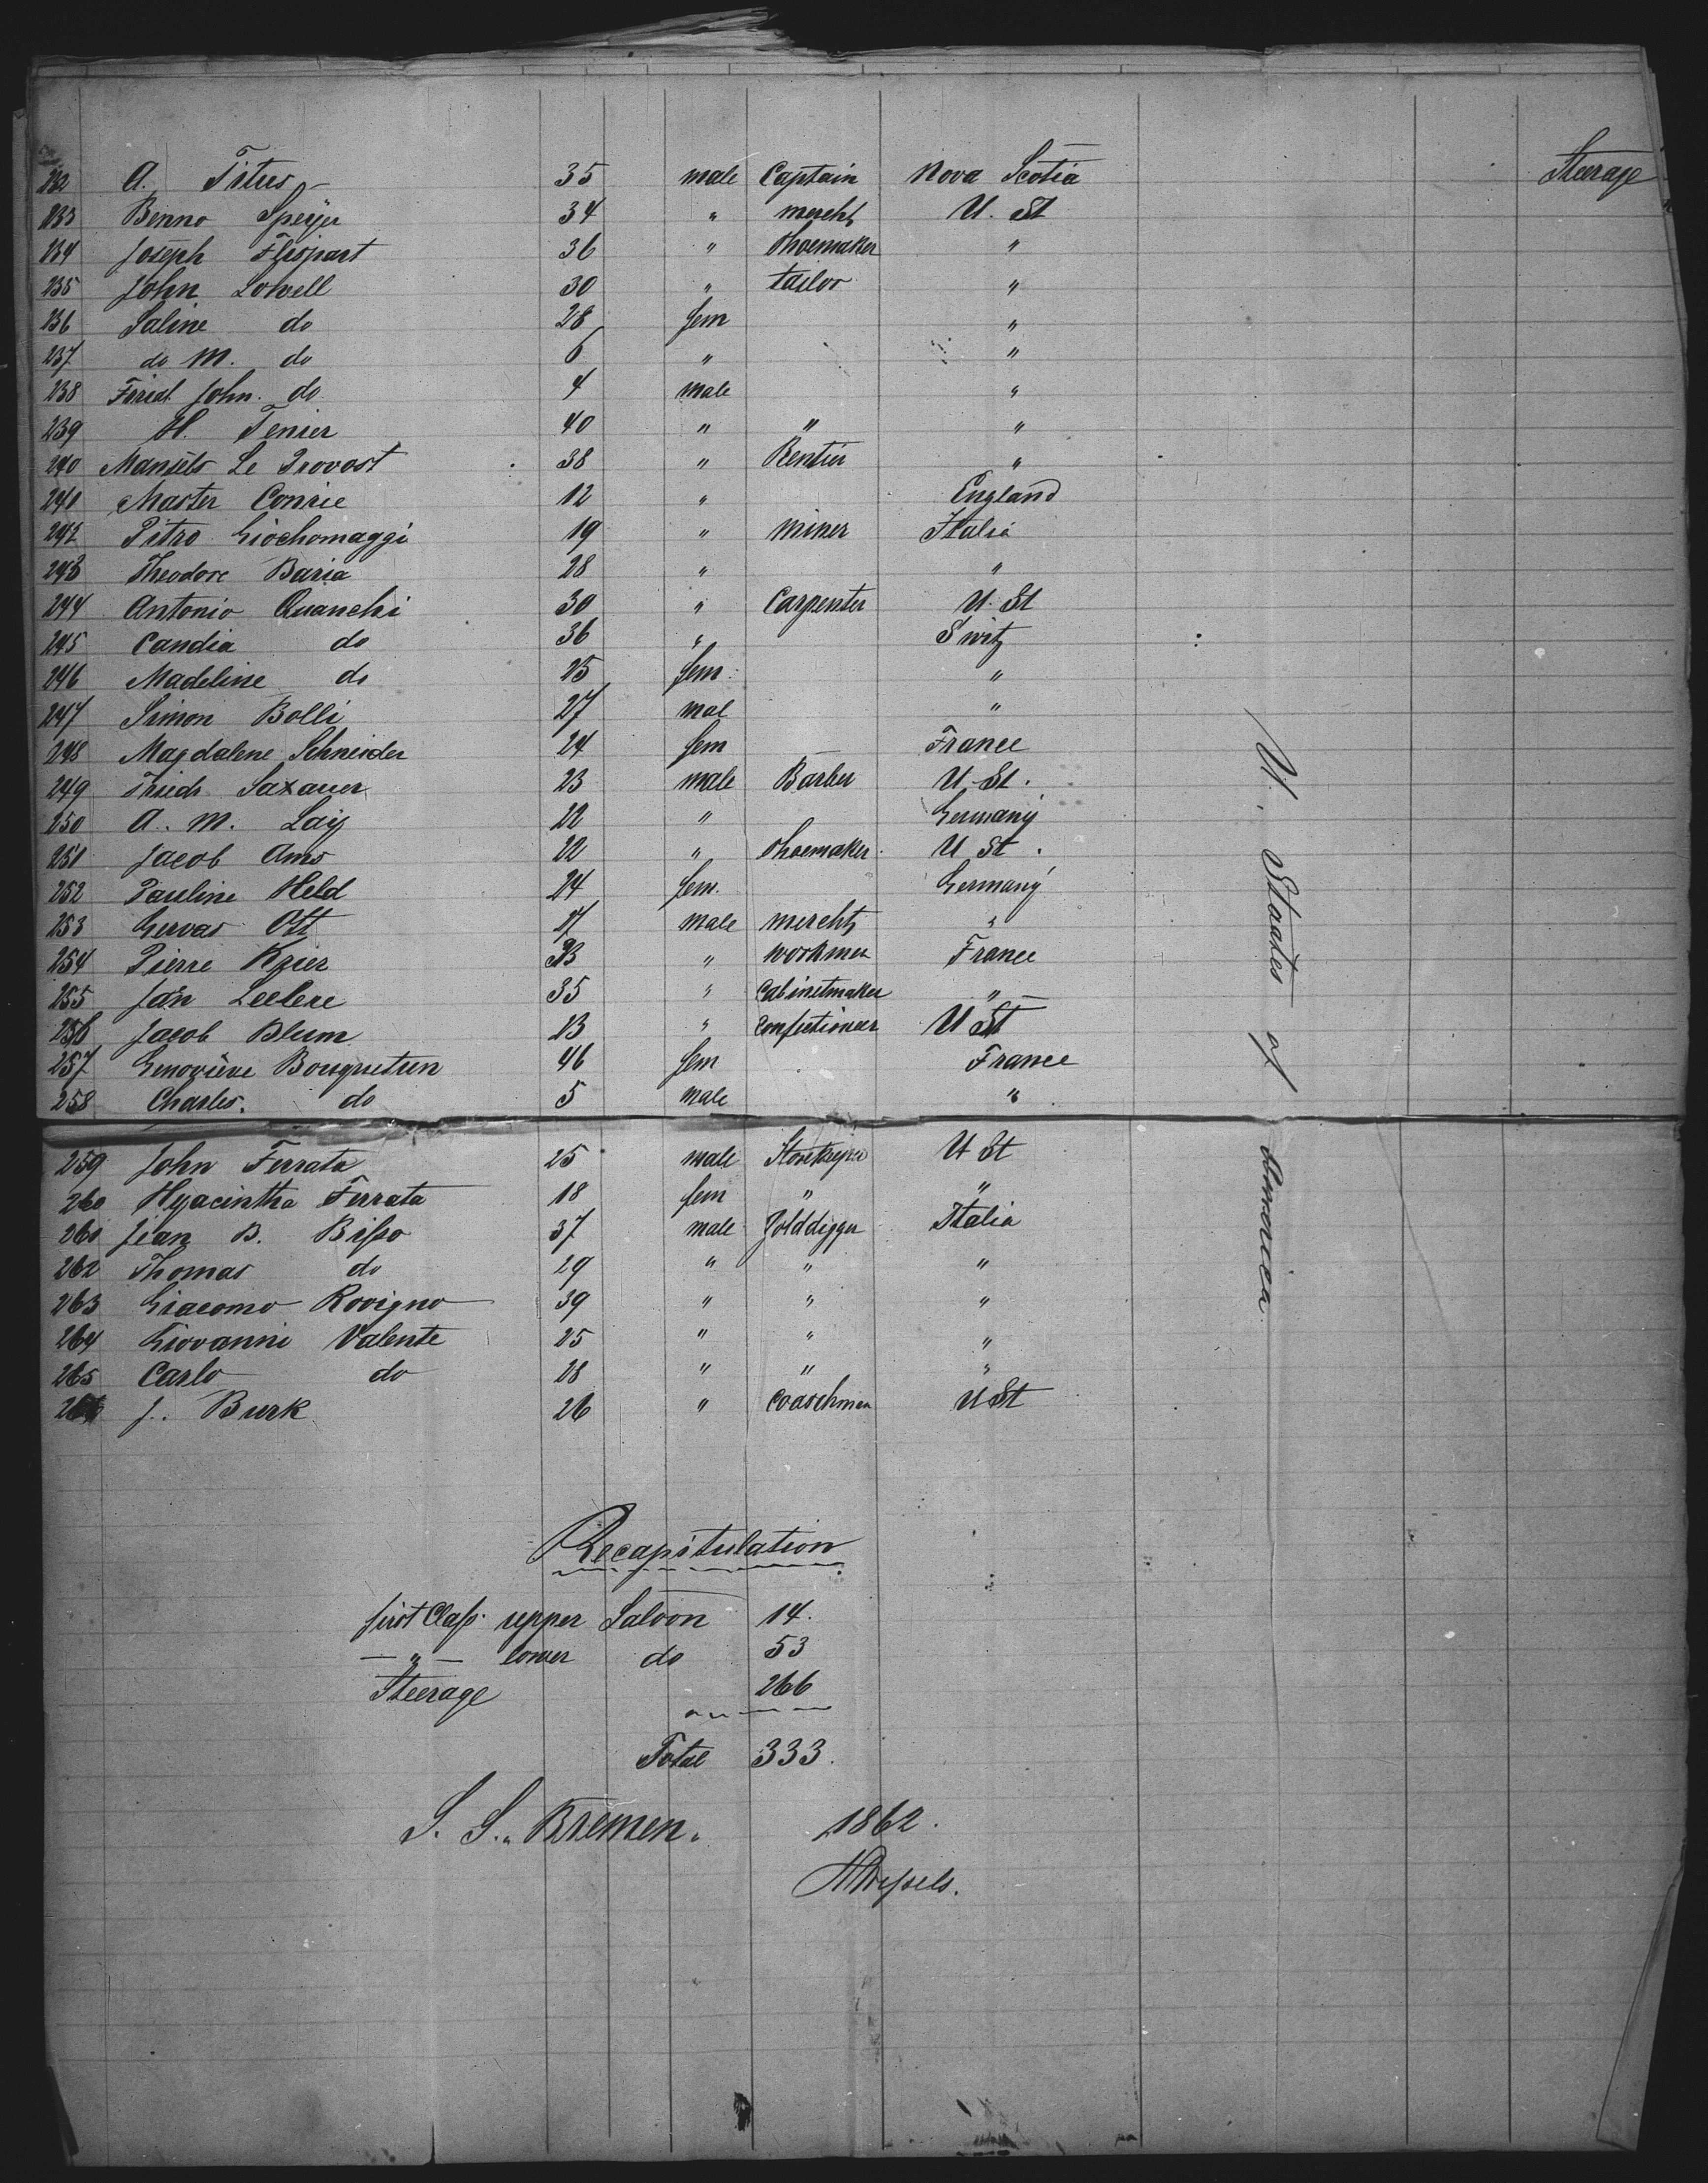 232 A. Titus 35 male Captain Nova Scotia Steerage
233 Benno Speyer 34 " mercht U. St
234 Joseph 36 " Shoemaker "
235 John Lowell 30 " tailor "
236 Saline do 28 fem "
237 do M. do 6 " "
238 Fried. John. do 4 male "
239 H. Tenier 40 " " "
240 Le Provost 38 " Rentier "
241 Master Conrie 12 " England
242 Pitro Giochomaggi 19 " miner Italia
243 Theodore Baria 28 " "
244 Antonio Quanchi 30 " Carpenter U. St
245 Candia do 36 " Switz
246 Madeline do 25 fem "
247 Simon Bolli 27 mal "
248 Magdalene Schneider 24 fem France
249 Friedr Saxauer 23 male Barber U. St.
250 A. M. Lay 22 " Germany
251 Jacob Ams 22 " Shoemaker U St.
252 Pauline Held 24 fem. Germany
253 Gervas Ott male mercht "
254 Pierre " workmen France
255 Jan Leclere 35 " Cabinetmaker "
256 Jacob Blum 23 " Confectioneer U St
257 46 fem France
258 Charles. do 5 male "
259 John Ferrata 25 male Storekeper U St
260 Hyacintha Ferrata 18 fem " "
261 Jean B. Bisso 37 male Golddigger Italia
262 Thomas do 29 " " "
263 Giacomo Rovigno 39 " " "
264 Giovanni Valente 25 " " "
265 Carlo do 28 " " "
266 J. Burk 26 " Coaschmen U St
U. Staates of America
Recapitulation
first Class upper Saloon 14.
— " — lower do 53
Steerage 266
Total 333.
S. S. "Bremen" 1862.
HWessels.